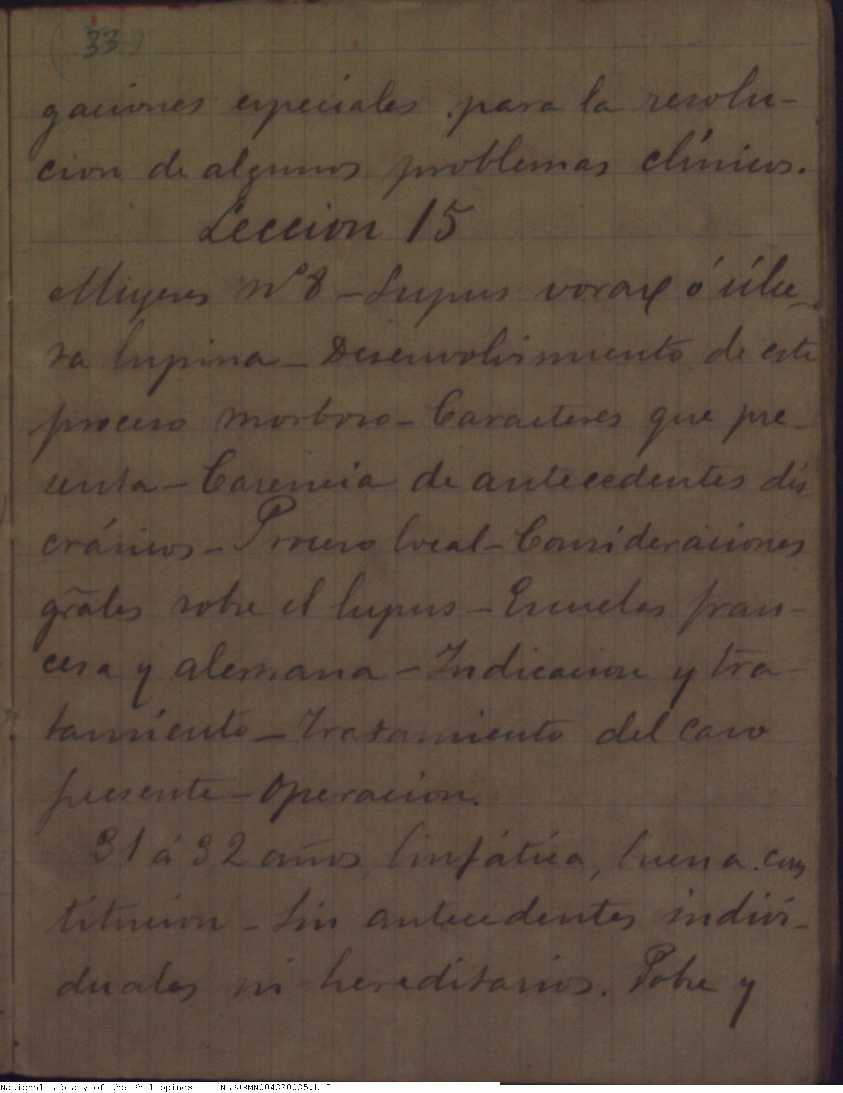 (33)
gaciones especiales para la resolu-
cion de algunos problemas clínicos.
Leccion 15
Mujeres Nº 8 - Lupus vorax ó úlce-
ra lupina - Desenvolvimiento de este
proceso morboso - Caracteres que pre-
senta - Carencia de antecedentes dis
crásicos - Proceso local - Consideraciones
gr̃ales sobre el lupus - Escuelas fran-
cesa y alemana - Indicacion y tra-
tamiento - Tratamiento del caso
presente - Operacion.
31 á 32 años, linfática, buena cons
titucion - Sin antecedentes indivi-
duales ni hereditarios. Pobre y
National Library of the Philippines